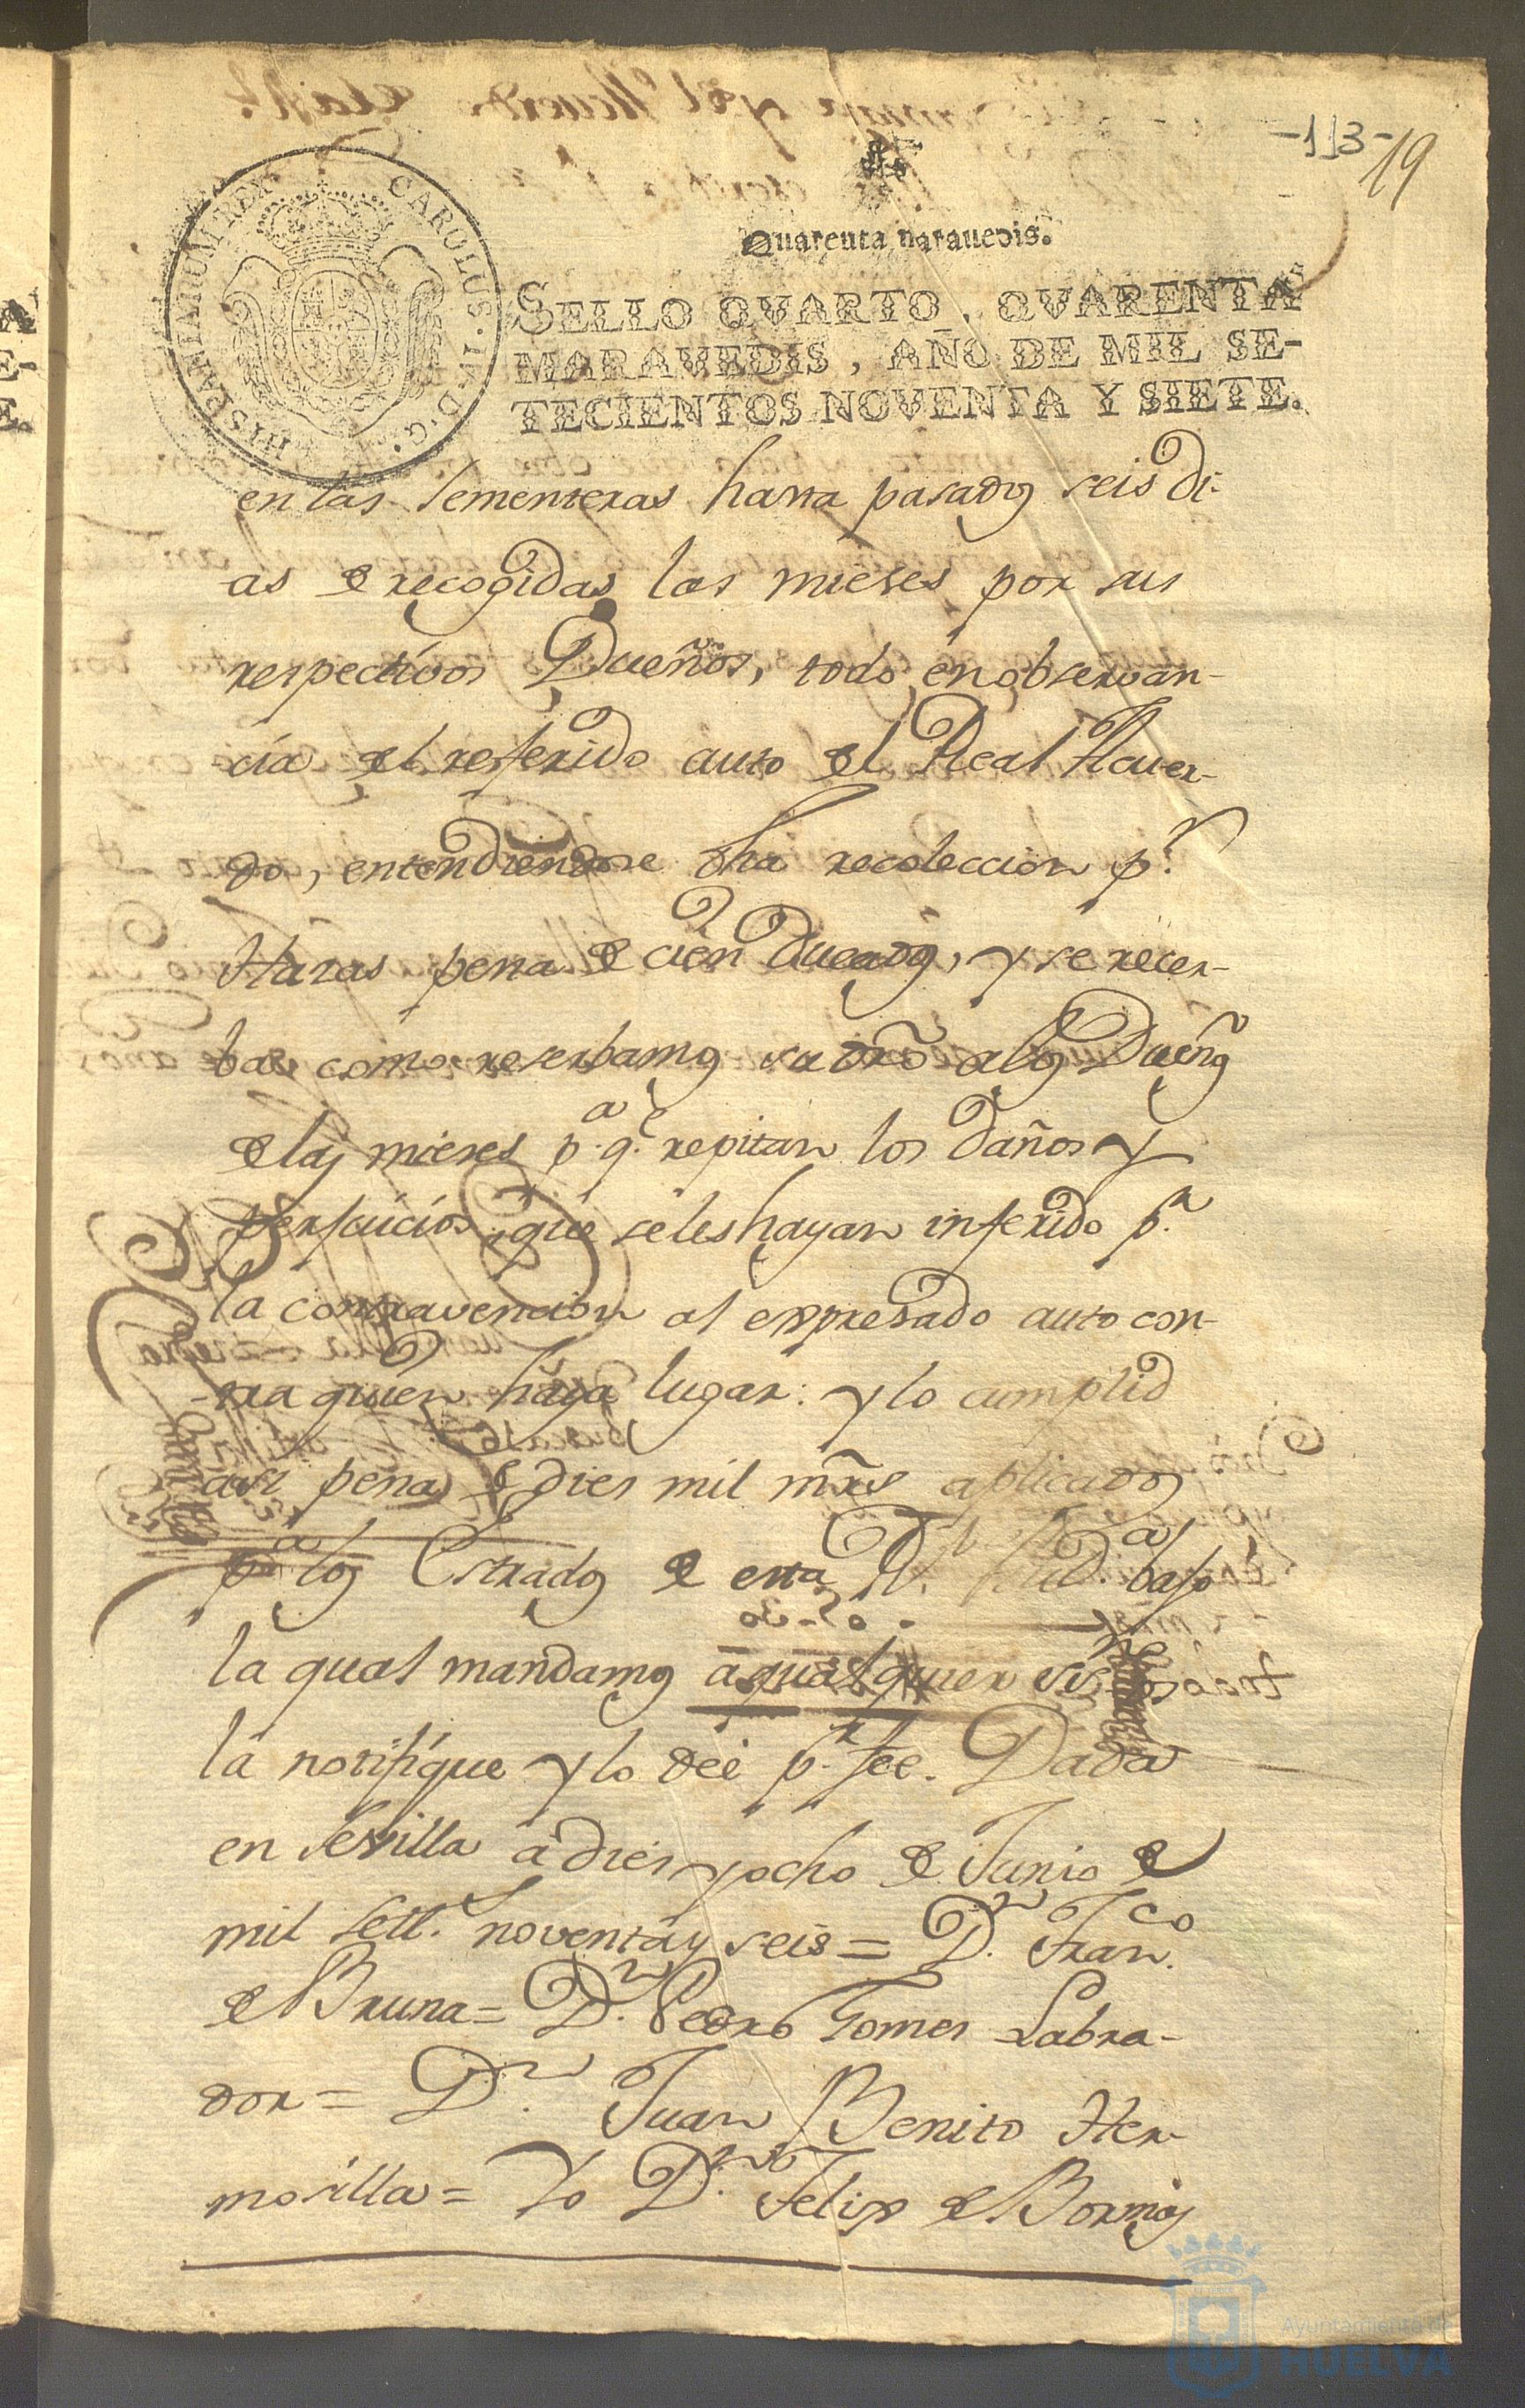 -113-
19
Quarenta maravedis.
CAROLUS·IV·D·G·HISPANIARUM REX
SELLO QVARTO, QVARENTA
MARAVEDIS, AÑO DE MIL SE-
TECIENTOS NOVENTA Y SIETE.
en las sementeras hasta pasados seis di-
as de recogidas las mieses por sus
respectivos Dueños, todo en observan-
cia del referido auto del Real Acuer-
do, entendiendose dha recoleccion pr.
Hazas pena de cien Ducados, y se recer-
ba como reserbamos su dro a los Dueños
de las mieses pa. qe. repitan los daños y
perjuicios, que se les hayan inferido pr.
la contravencion al expresado auto con-
tra quien haya lugar: y lo cumplid
asi pena de dies mil mrs aplicados
pa los Estrados de esta Rl. Aud.a bajo
la qual mandamos a qualquier
la notifique y lo deé pr. fee. Dada
en Sevilla a dies y ocho de Junio de
mil sett.s noventa y seis = Dn. Franco.
de Bruna = Dn. Pedro Gomes Labra-
dor = Dn. Juan Benito Her-
mosilla = Yo Dn. Felix de Bormas
Ayuntamiento de
HUELVA